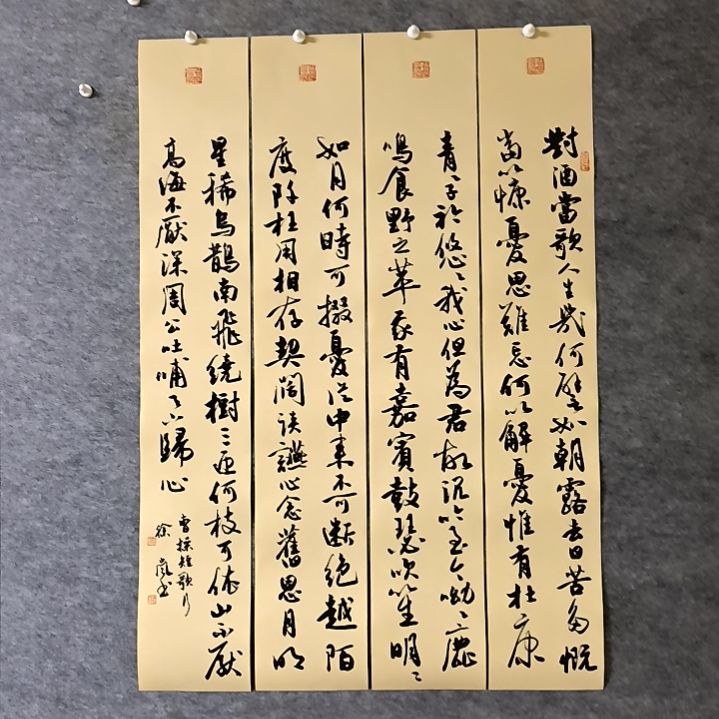 對酒當歌人生幾何譬如朝露去日苦多慨
當以慷憂思難忘何以解憂惟有杜康
青〻子衿悠〻我心但為君故沉吟至今呦〻鹿
鳴食野之苹我有嘉賓鼓瑟吹笙明〻
如月何時可掇憂從中來不可斷絕越陌
度阡枉用相存契闊談讌心念舊恩月明
星稀烏鵲南飛繞樹三匝何枝可依山不厭
高海不厭深周公吐哺天下歸心
曹操短歌行
徐嵐书